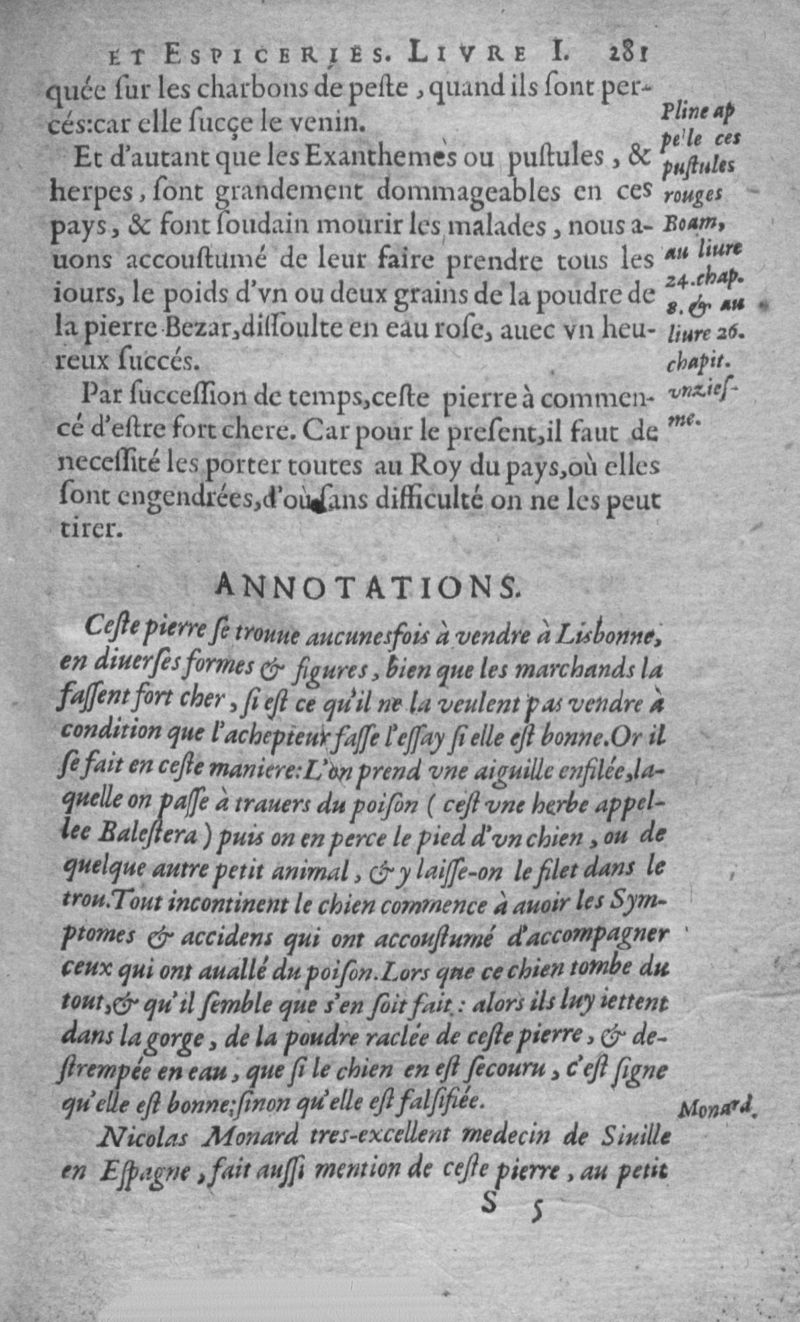 ET ESPICERIES. LIVRE I. 281
quée ſur les charbons de peſte , quand ils ſont per-
cés:car elle ſucçe le venin.
Et d'autant que les Exanthemes ou puſtules , &
herpes, ſont grandement dommageables en ces
pays, & font ſoudain mourir les malades , nous a-
uons accouſtumé de leur faire prendre tous les
iours, le poids d'vn ou deux grains de la poudre de
la pierre Bezar,diſſoulte en eau roſe, auec vn heu-
reux ſuccés.
Par ſucceſſion de temps,ceſte pierre à commen-
cé d'eſtre fort chere. Car pour le preſent,il faut de
neceſſité les porter toutes au Roy du pays,où elles
ſont engendrées,d'où ſans difficulté on ne les peut
tirer.
Pline ap
pelle ces
puſtules
rouges
Boam,
au liure
24.chap.
8. & au
liure 26.
chapit.
vnzieſ-
me.
ANNOTATIONS.
Ceſte pierre ſe trouue aucunesfois à vendre à Lisbonne,
en diuerſes formes & figures, bien que les marchands la
faſſent fort cher, ſi eſt ce qu'il ne la veulent pas vendre à
condition que l'achepteur faſſe l'eſſay ſi elle eſt bonne.Or il
ſe fait en ceſte maniere:L'on prend vne aiguille enfilée,la-
quelle on paſſe à trauers du poiſon ( ceſt vne herbe appel-
lee Baleſtera ) puis on en perce le pied d'vn chien , ou de
quelque autre petit animal, & y laiſſe-on le filet dans le
trou.Tout incontinent le chien commence à auoir les Sym-
ptomes & accidens qui ont accouſtumé d'accompagner
ceux qui ont auallé du poiſon.Lors que ce chien tombe du
tout,& qu'il ſemble que s'en ſoit fait : alors ils luy iettent
dans la gorge, de la poudre raclée de ceſte pierre, & de-
ſtrempée en eau, que ſi le chien en eſt ſecouru , c'eſt ſigne
qu'elle eſt bonne:ſinon qu'elle eſt falſifiée.
Nicolas Monard tres-excellent medecin de Siuille
en Eſpagne , fait auſſi mention de ceſte pierre , au petit
Monard.
S 5